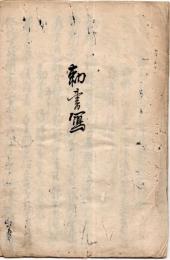 勅書寫